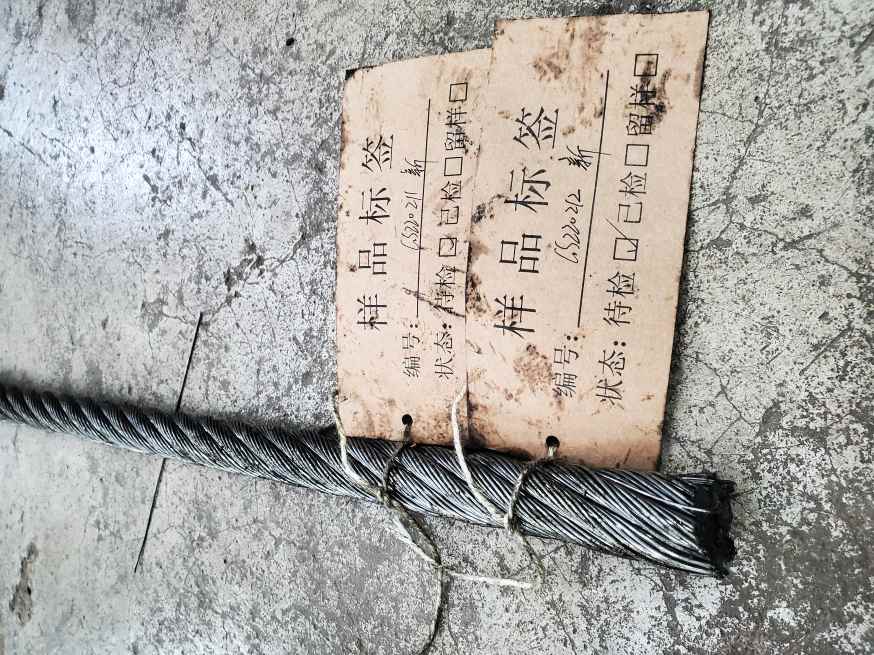 样品标签
编号: GS220211 新
状态: 待检☑ 已检□ 留样□
样品标签
编号: GS220212 新
状态: 待检☑ 已检□ 留样□